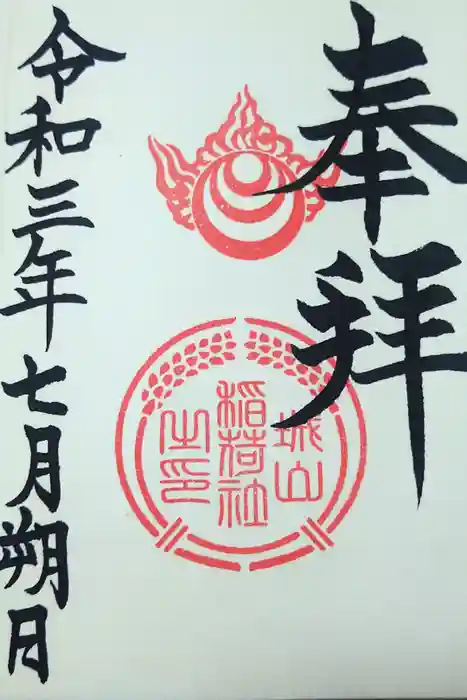 奉拝
城山
稲荷社
之印
令和三年七月朔日